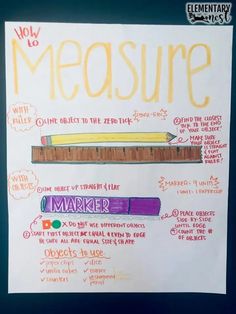 ELEMENTARY
nest
HOW
to
Measure
WITH
RULER
① LINE OBJECT TO THE ZERO TICK
② FIND THE CLOSEST
TICK TO THE END
OF YOUR OBJECT!
MAKE SURE
YOUR OBJECT
IS STRAIGHT
& FLAT
AGAINST
RULER!
WITH
OBJECTS
① LINE OBJECT UP STRAIGHT & FLAT
MARKER: 9 UNITS
1 UNIT: 1
MARKER
X DO NOT USE DIFFERENT OBJECTS
② START FIRST OBJECT EQUAL & EVEN TO EDGE
③ PLACE OBJECTS
SIDE-BY-SIDE
UNTIL EDGE
④ COUNT THE #
OF OBJECTS
Objects to use...
✓ paper clips ✓ dice
✓ unifix cubes ✓
✓ counters ✓ unsharpened
pencil